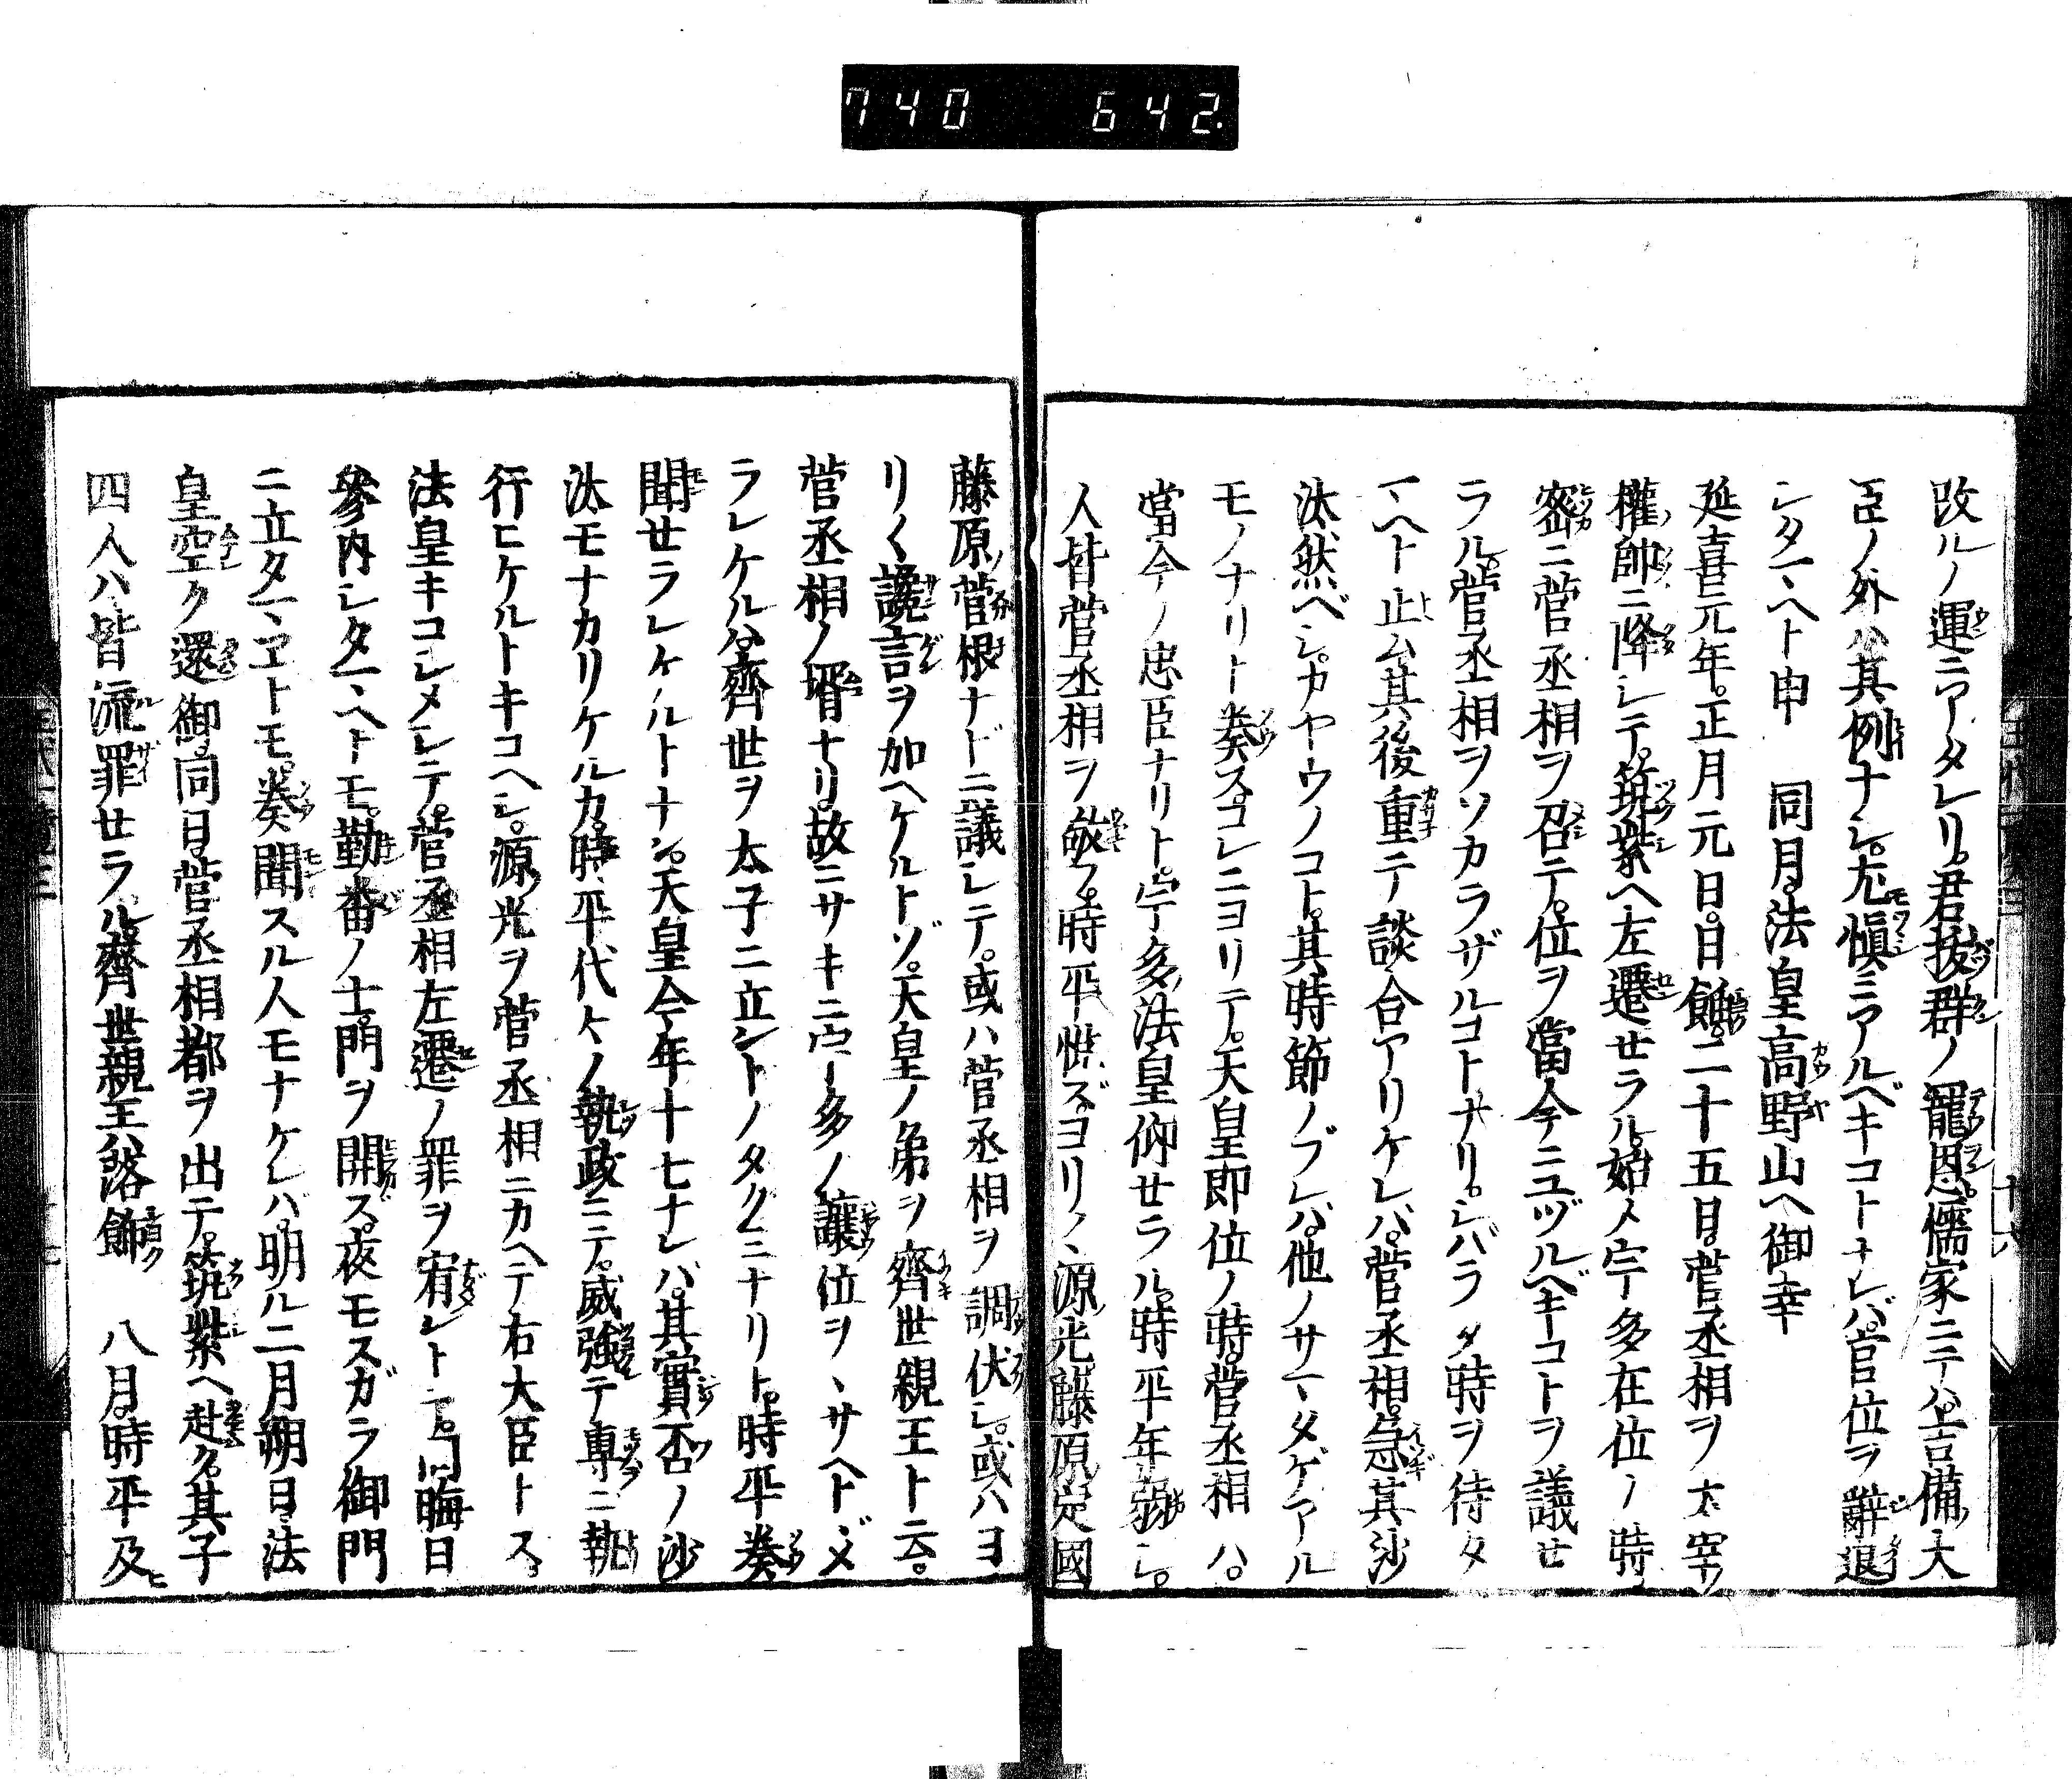 740 642.
改ルノ運ニアタレリ。君抜群ノ寵恩。儒家ニテハ。吉備大
臣ノ外ハ其例ナシ。尤愼ミアルベキコトナレバ。官位ヲ辭退
シタマヘト申 同月。法皇高野山ヘ御幸
延喜元年。正月元日。日飩。二十五日。菅丞相ヲ太宰
權帥ニ降シテ。筑紫ヘ左遷セラル。始メ宇多在位ノ時。
密ニ菅丞相ヲ召テ。位ヲ當今ニユヅルベキコトヲ議セ
ラル。菅丞相ヲソカラザルコトナリ。シバラク時ヲ待タ
マヘト止ム。其後重テ談合アリケレバ。菅丞相。急其沙
汰然ベシ。カヤウノコト。其時節ノブレバ。他ノサマタゲアル
モノナリト奏ス。コレニヨリテ。天皇即位ノ時。菅丞相ハ。
當今ノ忠臣ナリト。宇多法皇仰セラル。時平年弱シ。
人皆菅丞相ヲ敬フ。時平悦ズ。ヨリ〱源光藤原定國
藤原菅根ナドニ議シテ。或ハ菅丞相ヲ調伏シ。或ハヨ
リ〱讒言ヲ加ヘケルトゾ。天皇ノ弟ヲ齊世親王ト云。
菅丞相ノ壻ナリ。故ニサキニ宇多ノ讓位ヲヽサヘトヾメ
ラレケルハ。齊世ヲ太子ニ立ントノタクミナリト。時平奏
聞セラレケルトナン。天皇今年十七ナレバ。其實否ノ沙
汰モナカリケルカ。時平代々ノ執政ニテ。威強テ專ニ執
行ヒケルトキコヘシ。源光ヲ菅丞相ニカヘテ右大臣トス。
法皇キコシメシテ。菅丞相左遷ノ罪ヲ宥シトテ。同晦日
參内シタマヘトモ。勤番ノ士。門ヲ開ズ。夜モスガラ御門
ニ立タマヱトモ。奏聞スル人モナケレバ。明ル二月朔日。法
皇空ク還御。同日菅丞相都ヲ出テ。筑紫ヘ赴ク。其子
四人ハ皆流罪セラル。齊世親王ハ落飾 八月。時平及